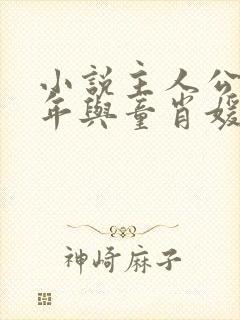 小説主人公
年與童肖媛
神崎麻子